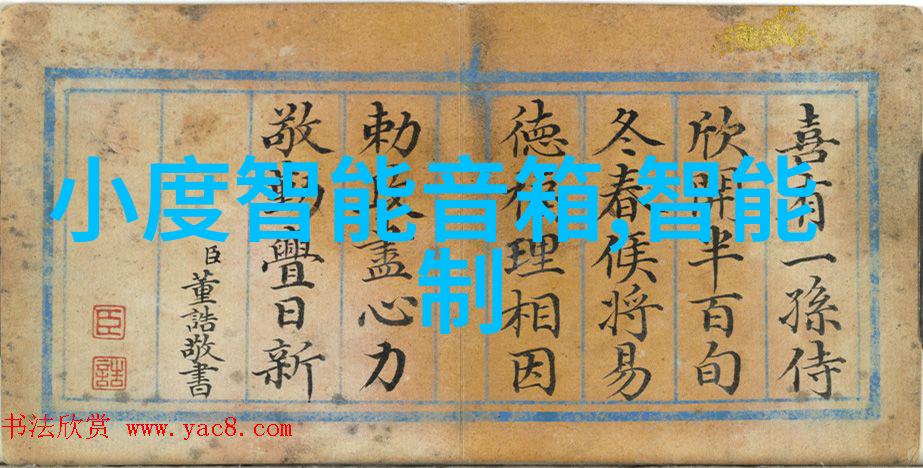 喜有一孫侍
欣開半百旬
冬春候将易
德理相因
勅心力
敬勤日新
臣董誥敬書
臣
誥
小度智能音箱,智能
制
书法欣赏 www.yac8.com